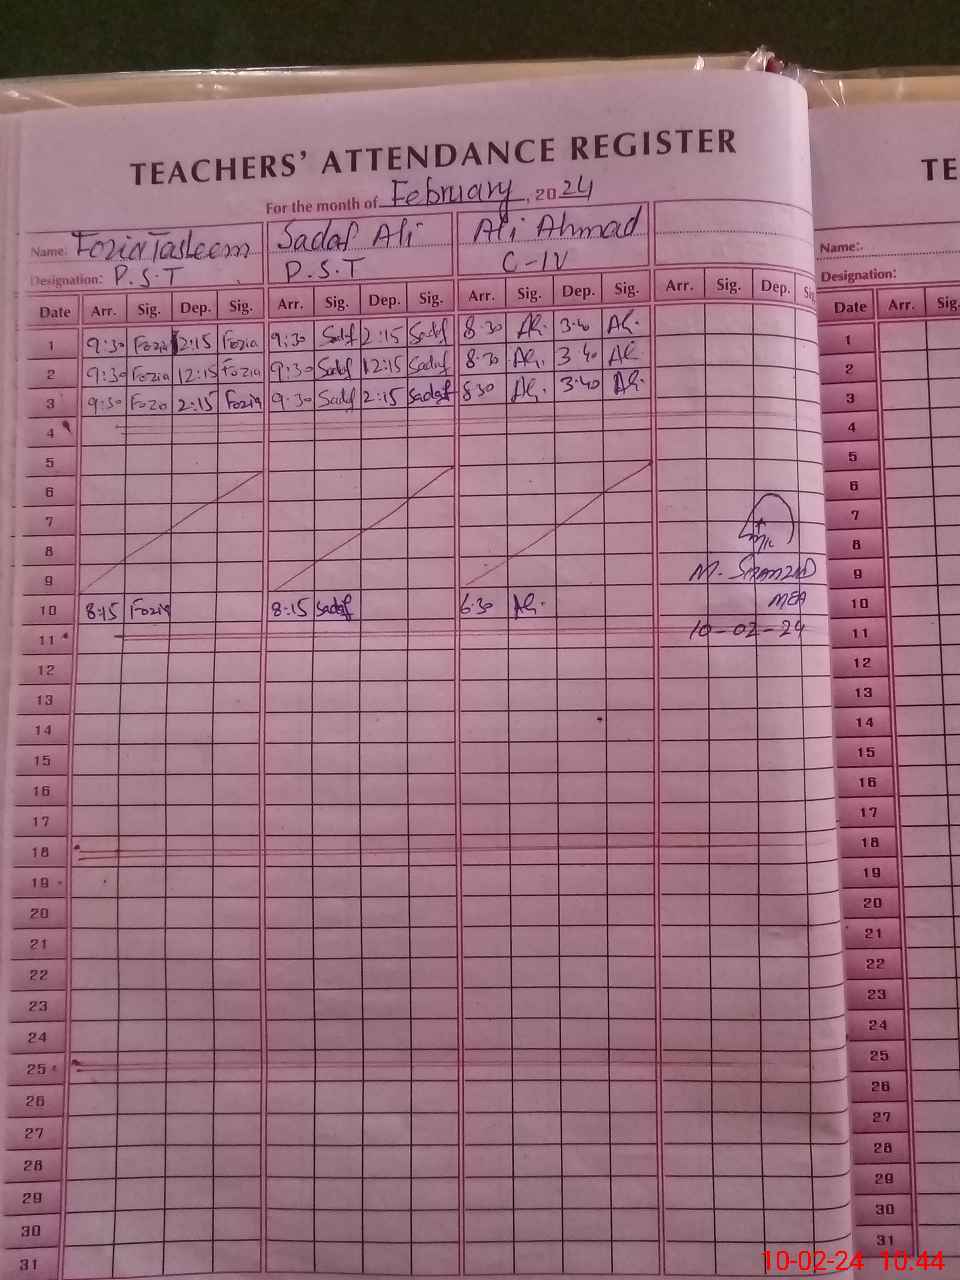 TEACHERS' ATTENDANCE REGISTER
TE
For the month of February, 2024
Name: Fozia Tasleem Sadaf Ali Ali Ahmad
Name:
Designation: P.S.T P.S.T C-IV
Designation:
Date Arr. Sig. Dep. Sig. Arr. Sig. Dep. Sig. Arr. Sig. Dep. Sig. Arr. Sig. Dep. Sig.
Date Arr. Sig.
1 9:30 Fozia 2:15 Fozia 9:30 Sadaf 2:15 Sadaf 8.30 Ali. 3.40 Ali. 1
2 9:30 Fozia 12:15 Fozia 9:30 Sadaf 12:15 Sadaf 8.30 Ali. 3.40 Ali. 2
3 9:30 Fozia 2:15 Fozia 9.30 Sadaf 2:15 Sadaf 830 Ali. 3.40 Ali. 3
4 4
5 5
6 6
7 7
8 8
9 M. Shahzad 9
10 8:15 Fozia 8:15 Sadaf 6.30 Ali. MEA 10
11 10-02-24 11
12 12
13 13
14 14
15 15
16 16
17 17
18 18
19 19
20 20
21 21
22 22
23 23
24 24
25 25
26 26
27 27
28 28
29 29
30 30
31 31
10-02-24 10.44